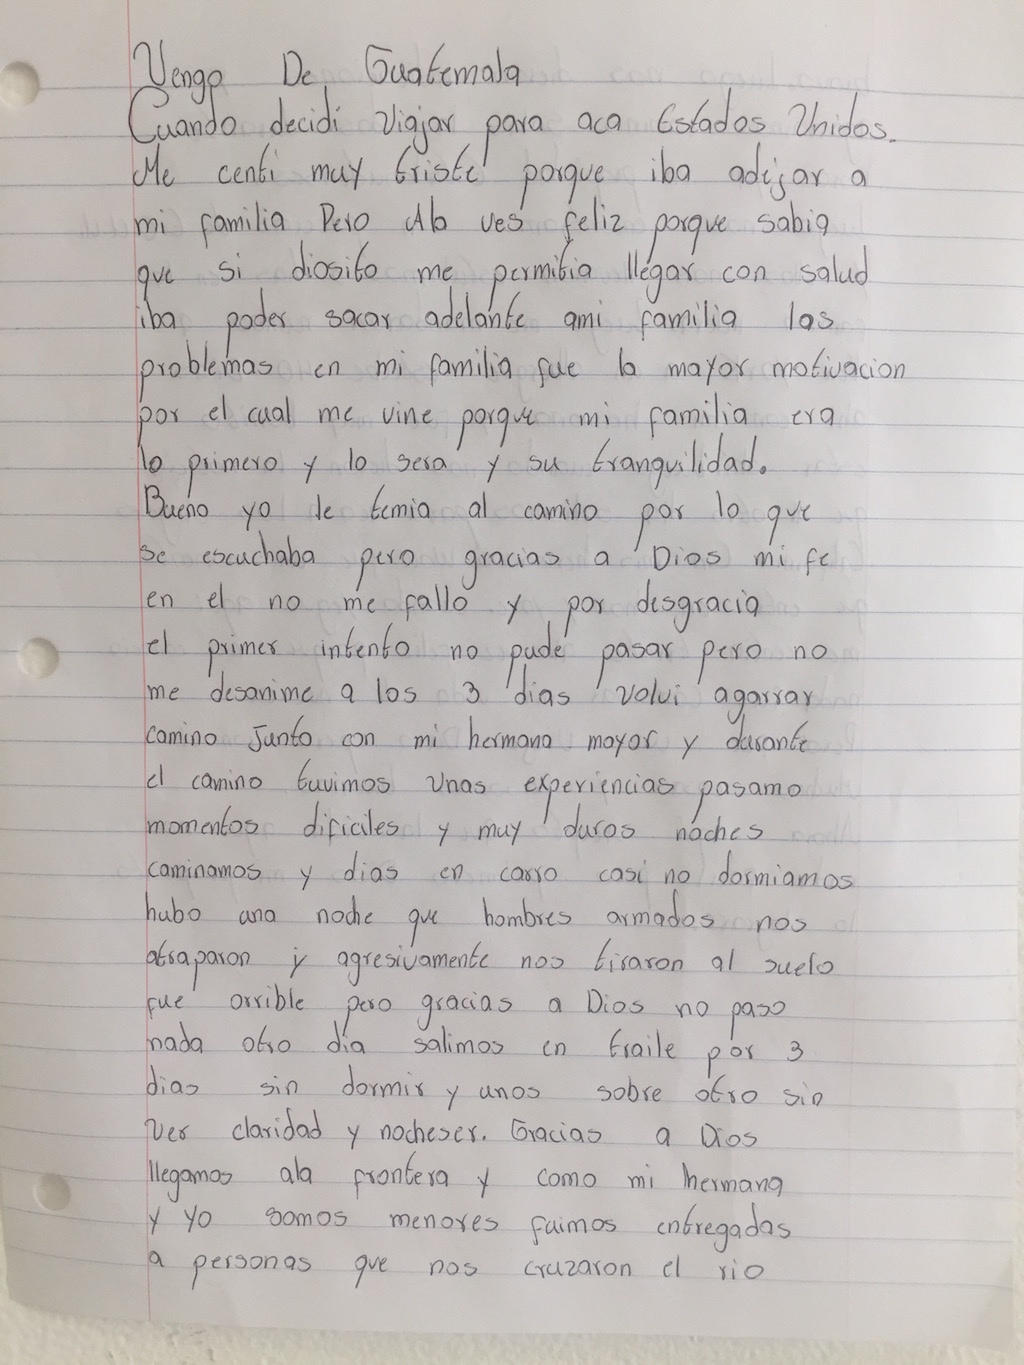 Vengo De Guatemala
Cuando decidi viajar para aca Estados Unidos.
Me centi muy triste porque iba adejar a
mi familia Pero Ala ves feliz porque sabia
que si diosito me permitia llegar con salud
iba poder sacar adelante ami familia los
problemas en mi familia fue la mayor motivacion
por el cual me vine porque mi familia era
lo primero y lo sera y su tranquilidad.
Bueno yo le temia al camino por lo que
se escuchaba pero gracias a Dios mi fe
en el no me fallo y por desgracia
el primer intento no pude pasar pero no
me desanime a los 3 dias volvi agarrar
camino Junto con mi hermana mayor y durante
el camino tuvimos unas experiencias pasamo
momentos dificiles y muy duros noches
caminamos y dias en carro casi no dormiamos
hubo una noche que hombres armados nos
atraparon y agresivamente nos tiraron al suelo
fue orrible pero gracias a Dios no paso
nada otro dia salimos en traile por 3
dias sin dormir y unos sobre otro sin
ver claridad y nocheser. Gracias a Dios
llegamos ala frontera y como mi hermana
y yo somos menores fuimos entregadas
a personas que nos cruzaron el rio